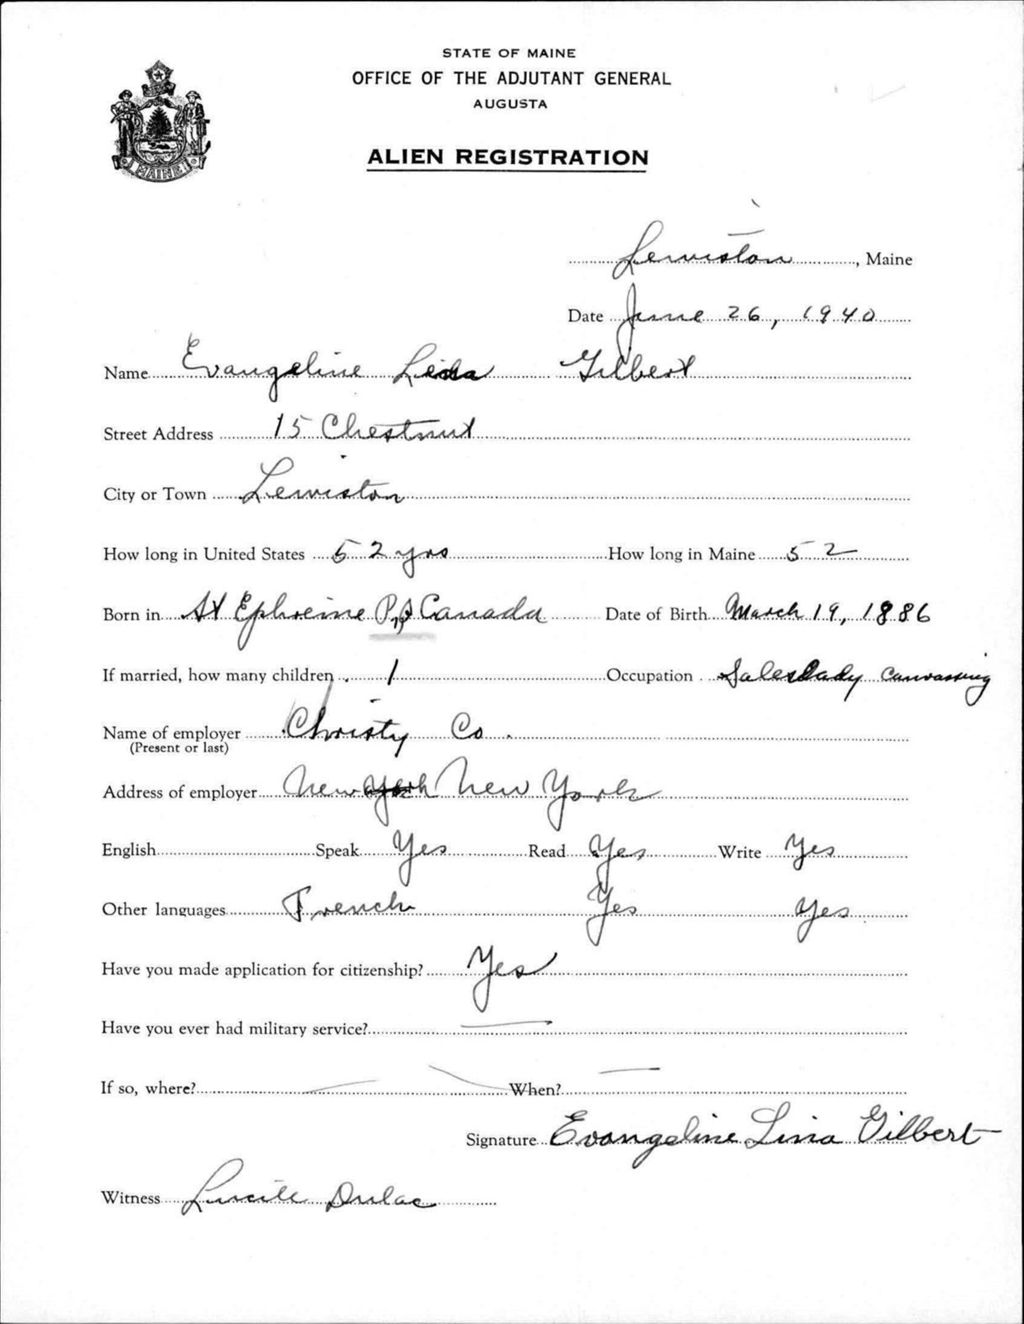 STATE OF MAINE
OFFICE OF THE ADJUTANT GENERAL
AUGUSTA
ALIEN REGISTRATION
MAINE
Lewiston, Maine
Date June 26, 1940
Name Evangeline Gilbert
Street Address 15 Chestnut
City or Town Lewiston
How long in United States 52 yrs How long in Maine 52
Born in St Ephreime P.Q Canada Date of Birth March 19, 1886
If married, how many children 1 Occupation Saleslady Canvassing
Name of employer Christy Co.
(Present or last)
Address of employer New York New York
English Speak Yes Read Yes Write Yes
Other languages French Yes Yes
Have you made application for citizenship? Yes
Have you ever had military service? —
If so, where? — When? —
Signature Evangeline Gilbert
Witness Lucille Dulac